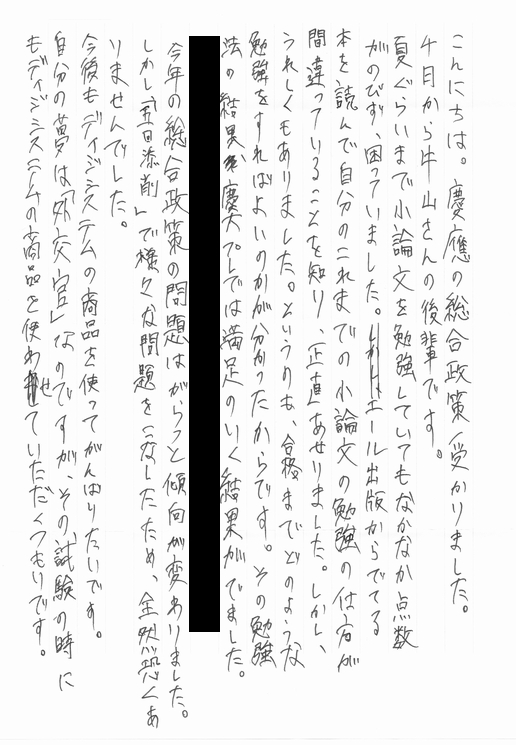 こんにちは。慶應の総合政策受かりました。
4月から中山さんの後輩です。
夏ぐらいまで小論文を勉強していてもなかなか点数
がのびず、困っていました。エール出版からでてる
本を読んで自分のこれまでの小論文の勉強の仕方が
間違っていることを知り、正直あせりました。しかし、
うれしくもありました。というのも、合格までどのような
勉強をすればよいのかが分かったからです。その勉強
法の結果、慶大プレでは満足のいく結果がでました。
今年の総合政策の問題はがらっと傾向が変わりました。
しかし「五日添削」で様々な問題をこなしたため、全然恐くあ
りませんでした。
今後もディジシステムの商品を使ってがんばりたいです。
自分の夢は「外交官」なのですが、その試験の時に
もディジシステムの商品を使わせていただくつもりです。